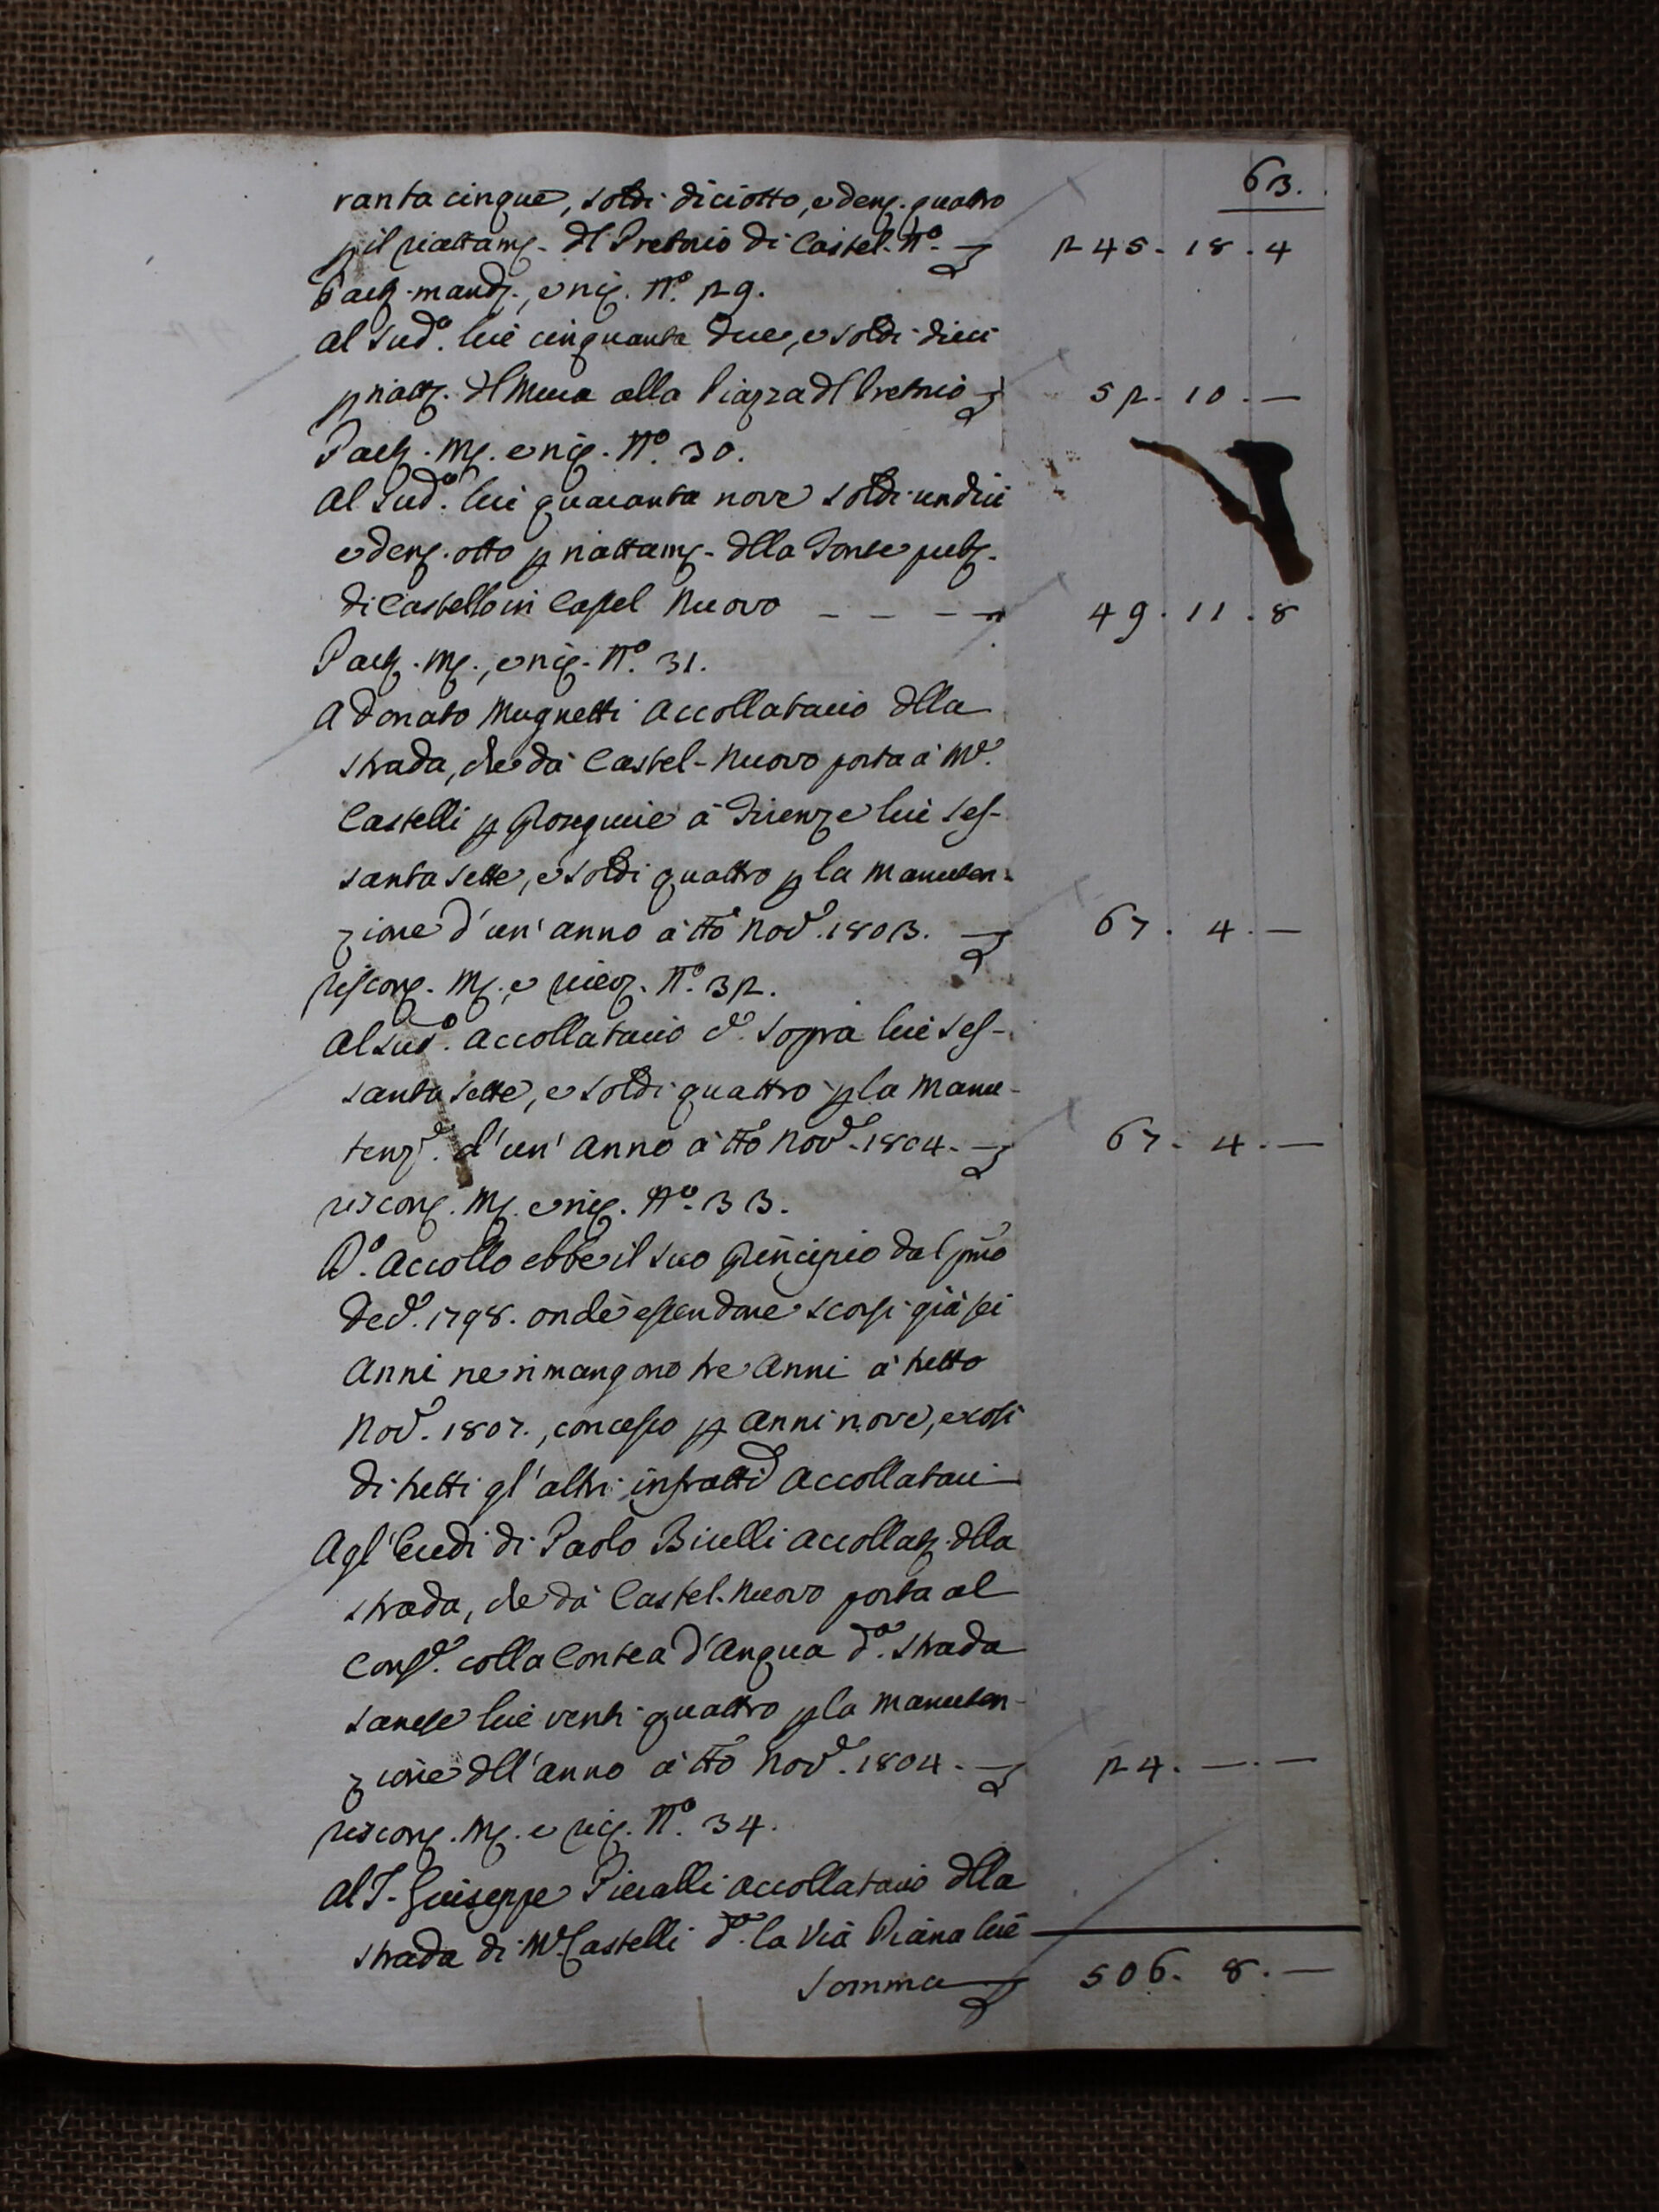 63.
ranta cinque, soldi diciotto, e denʒ. quatro
p il riattamʒ. dl Pretorio di Castel. Nº. 245. 18. 4
Partʒ. mandʒ., e ricʒ. Nº. 29.
Al sudº. lire cinquanta due, e soldi dieci
p riattʒ. dl Muro alla Piazza dl Pretorio 52. 10. —
Partʒ. Mʒ. e ricʒ. Nº. 30.
Al sudº. lire quaranta nove soldi undici
e denʒ. otto p riattamʒ. dlla Fonte pubʒ.
di Castello in Castel Nuovo — — — 49. 11. 8
Partʒ. Mʒ., e ricʒ. Nº. 31.
A Donato Mugnetti Accollatario dlla
strada, che dà Castel-Nuovo porta à Mᵉ.
Castelli p Proseguire à Firenze lire ses-
santa sette, e soldi quattro p la manuten-
zione d'un' anno à tto Novᵉ. 1803. 67. 4. —
riscong. Mʒ. e ricevʒ. Nº. 32.
Al sudº. Accollatario cᵉ. sopra lire ses-
santa sette, e soldi quattro p la manu-
tenzᵉ. d'un' anno à tto Novᵉ. 1804. 67. 4. —
riscong. Mʒ. e ricʒ. Nº. 33.
Dº. Accollo ebbe il suo Principio dal pmo
Decᵉ. 1798. onde essendone scorsi già sei
Anni ne rimangono tre Anni à tutto
Novᵉ. 1807., concesso p Anni nove, e così
di tutti gl'altri infratti Accollatari
Agl'Eredi di Paolo Bicelli Accollatʒ. dlla
strada, che dà Castel-Nuovo porta al
Confᵉ. colla Contea d'Anqua dª. Strada
sanese lire venti quattro p la manuten-
zione dll'anno à tto Novᵉ. 1804. 24. —. —
riscong. Mʒ. e ricʒ. Nº. 34.
Al S. Giuseppe Pieralli Accollatario dlla
strada di Mᵉ Castelli dª. la Via Piana lire
Somma 506. 8. —